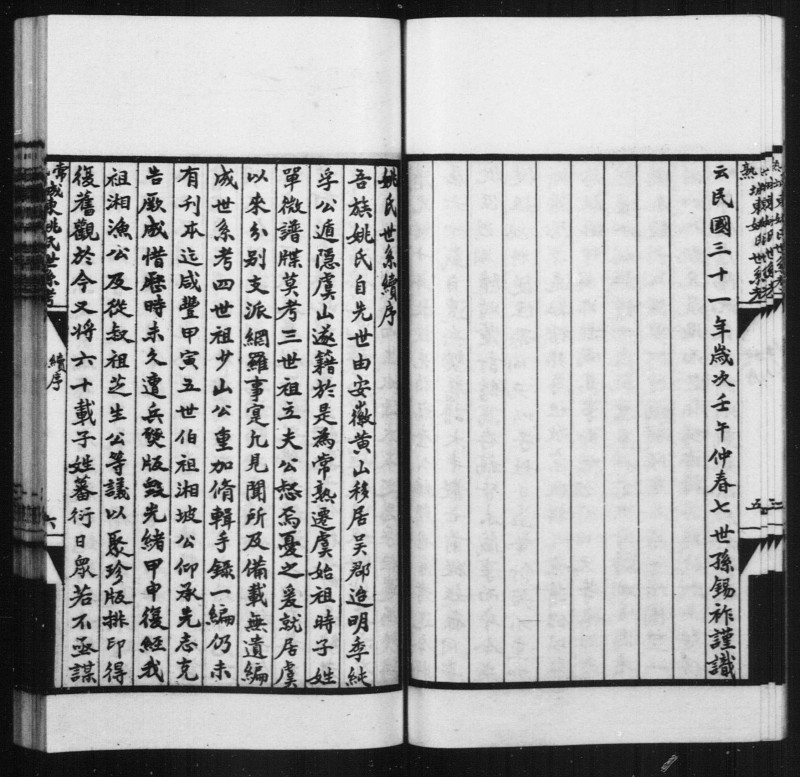 云民國三十一年歲次壬午仲春七世孫錫祚謹識
五
姚氏世系續序
吾族姚氏自先世由安徽黃山移居吳郡迨明季純
孚公遁隱虞山遂籍於是為常熟遷虞始祖時子姓
單微譜牒莫考三世祖立夫公惄焉憂之爰就居虞
以來分別支派網羅事寔凡見聞所及備載無遺編
成世系考四世祖少山公重加脩輯手錄一編仍未
有刊本迄咸豐甲寅五世伯祖湘坡公仰承先志克
告厥成惜歷時未久遭兵燹版毀光緒甲申復經我
祖湘漁公及從叔祖芝生公等議以聚珍版排印得
復舊觀於今又將六十載子姓蕃衍日眾若不亟謀
常城東姚氏世系考
續序
六